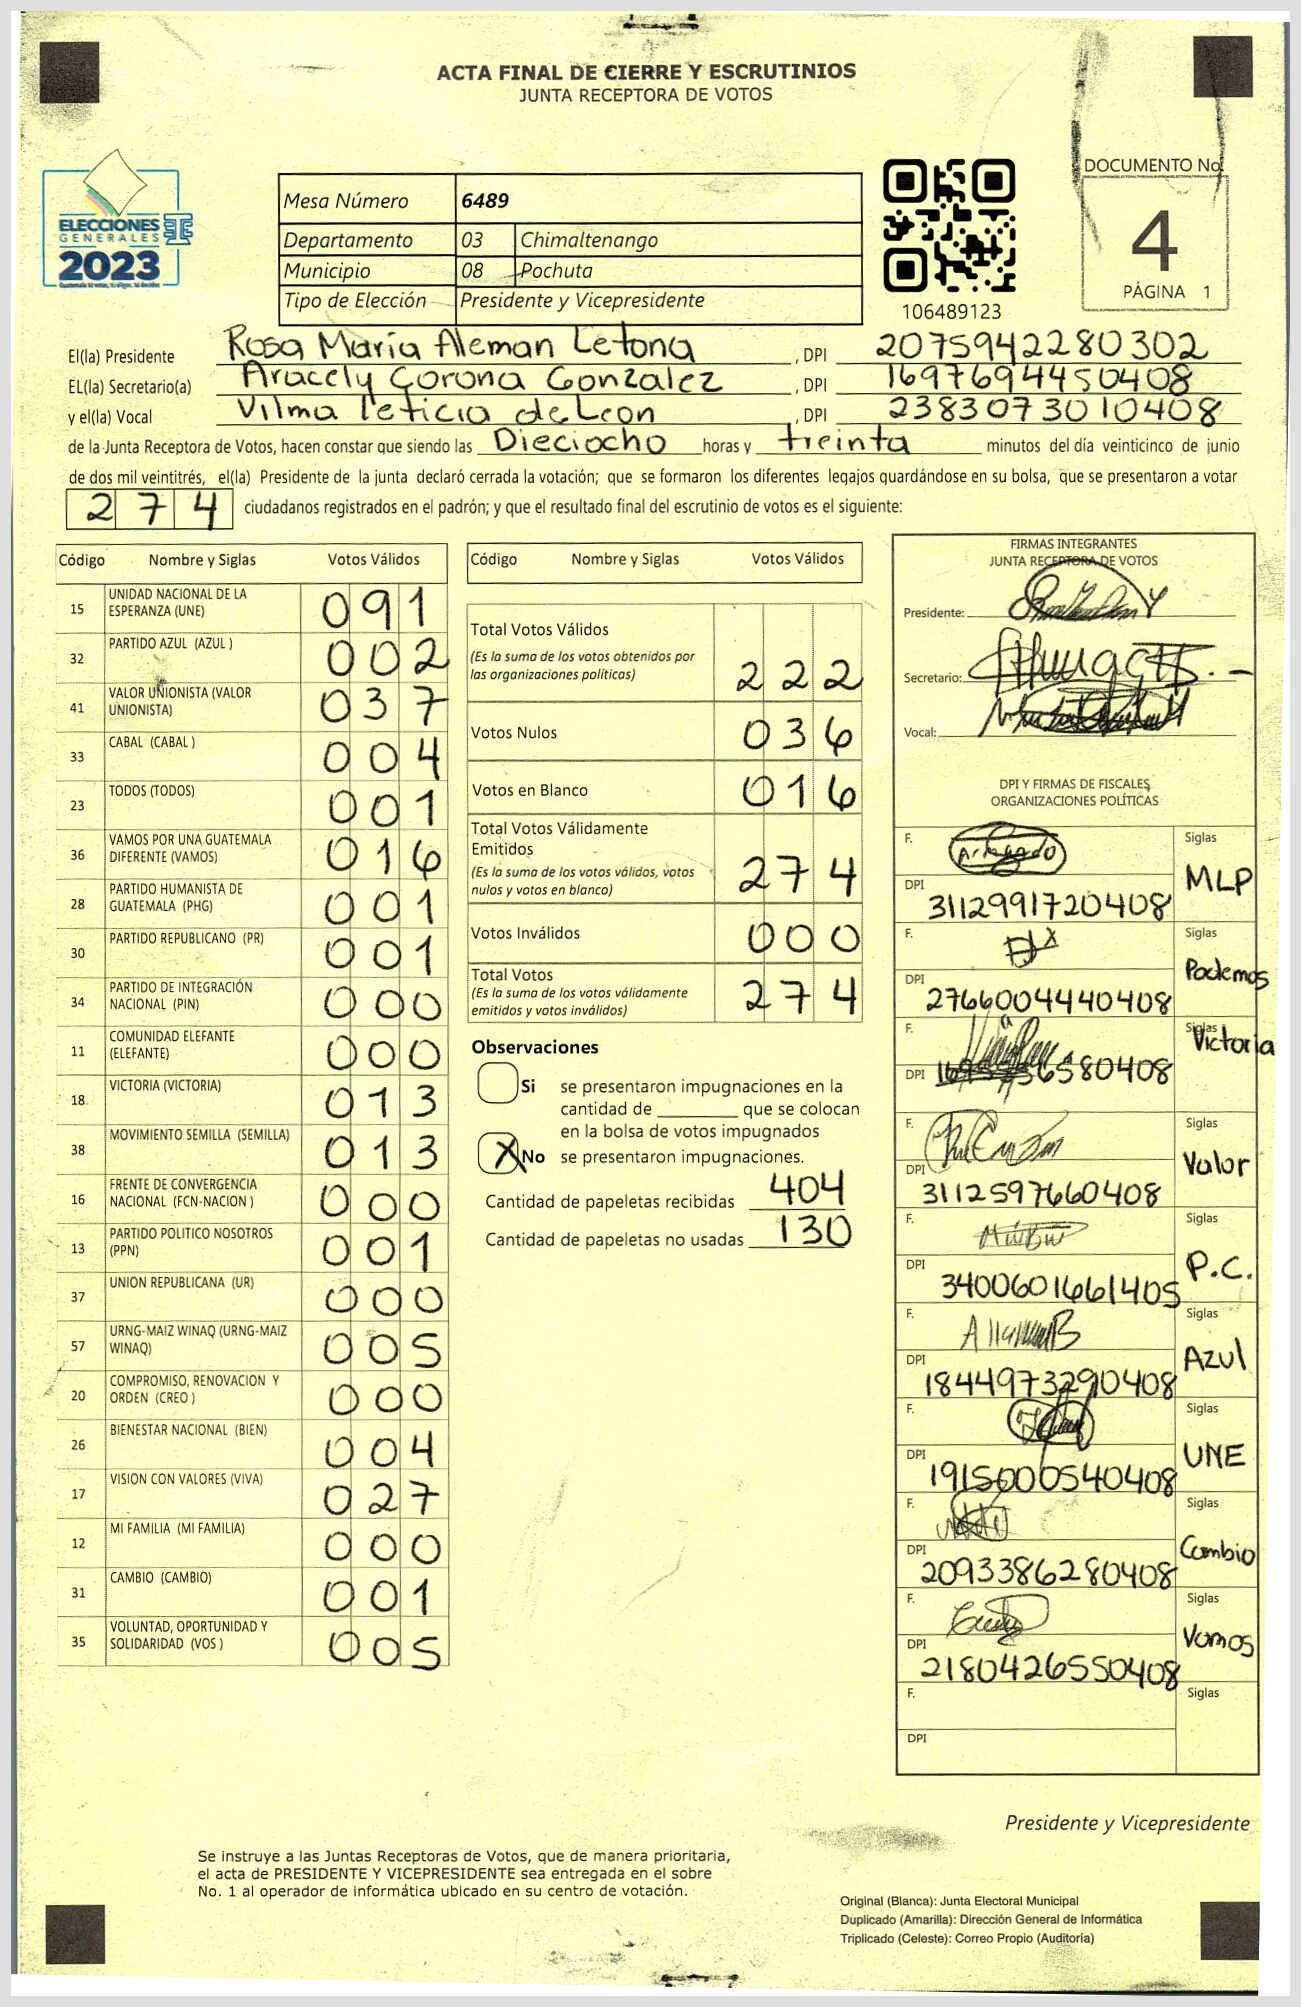 ACTA FINAL DE CIERRE Y ESCRUTINIOS
JUNTA RECEPTORA DE VOTOS
ELECCIONES
GENERALES
2023
Mesa Número 6489
Departamento 03 Chimaltenango
Municipio 08 Pochuta
Tipo de Elección Presidente y Vicepresidente
106489123
DOCUMENTO No.
4
PÁGINA 1
El(la) Presidente Rosa María Aleman Letona , DPI 2075942280302
EL(la) Secretario(a) Aracely Corona Gonzalez , DPI 1697694450408
y el(la) Vocal Vilma leticia de Leon , DPI 2383073010408
de la Junta Receptora de Votos, hacen constar que siendo las Dieciocho horas y treinta minutos del día veinticinco de junio
de dos mil veintitrés, el(la) Presidente de la junta declaró cerrada la votación; que se formaron los diferentes legajos quardándose en su bolsa, que se presentaron a votar
274 ciudadanos registrados en el padrón; y que el resultado final del escrutinio de votos es el siguiente:
Código Nombre y Siglas Votos Válidos
15 UNIDAD NACIONAL DE LA ESPERANZA (UNE) 091
32 PARTIDO AZUL (AZUL ) 002
41 VALOR UNIONISTA (VALOR UNIONISTA) 037
33 CABAL (CABAL ) 004
23 TODOS (TODOS) 001
36 VAMOS POR UNA GUATEMALA DIFERENTE (VAMOS) 016
28 PARTIDO HUMANISTA DE GUATEMALA (PHG) 001
30 PARTIDO REPUBLICANO (PR) 001
34 PARTIDO DE INTEGRACIÓN NACIONAL (PIN) 000
11 COMUNIDAD ELEFANTE (ELEFANTE) 000
18 VICTORIA (VICTORIA) 013
38 MOVIMIENTO SEMILLA (SEMILLA) 013
16 FRENTE DE CONVERGENCIA NACIONAL (FCN-NACION ) 000
13 PARTIDO POLITICO NOSOTROS (PPN) 001
37 UNION REPUBLICANA (UR) 000
57 URNG-MAIZ WINAQ (URNG-MAIZ WINAQ) 005
20 COMPROMISO, RENOVACION Y ORDEN (CREO ) 000
26 BIENESTAR NACIONAL (BIEN) 004
17 VISION CON VALORES (VIVA) 027
12 MI FAMILIA (MI FAMILIA) 000
31 CAMBIO (CAMBIO) 001
35 VOLUNTAD, OPORTUNIDAD Y SOLIDARIDAD (VOS ) 005
Código Nombre y Siglas Votos Válidos
Total Votos Válidos
(Es la suma de los votos obtenidos por
las organizaciones políticas) 222
Votos Nulos 036
Votos en Blanco 016
Total Votos Válidamente
Emitidos
(Es la suma de los votos válidos, votos
nulos y votos en blanco) 274
Votos Inválidos 000
Total Votos
(Es la suma de los votos válidamente
emitidos y votos inválidos) 274
Observaciones
Si se presentaron impugnaciones en la
cantidad de ________ que se colocan
en la bolsa de votos impugnados
X No se presentaron impugnaciones.
Cantidad de papeletas recibidas 404
Cantidad de papeletas no usadas 130
FIRMAS INTEGRANTES
JUNTA RECEPTORA DE VOTOS
Presidente:
Secretario:
Vocal:
DPI Y FIRMAS DE FISCALES
ORGANIZACIONES POLÍTICAS
F. Siglas
MLP
DPI 3112991720408
F. Siglas
Podemos
DPI 2766004440408
F. Siglas
Victoria
DPI
F. Siglas
Valor
DPI 3112597660408
F. Siglas
P.C.
DPI 3400601661405
F. Siglas
Azul
DPI 1844973290408
F. Siglas
UNE
DPI 1915000540408
F. Siglas
Cambio
DPI 2093386280408
F. Siglas
Vamos
DPI 2180426550408
F. Siglas
DPI
Presidente y Vicepresidente
Se instruye a las Juntas Receptoras de Votos, que de manera prioritaria,
el acta de PRESIDENTE Y VICEPRESIDENTE sea entregada en el sobre
No. 1 al operador de informática ubicado en su centro de votación.
Original (Blanca): Junta Electoral Municipal
Duplicado (Amarilla): Dirección General de Informática
Triplicado (Celeste): Correo Propio (Auditoría)